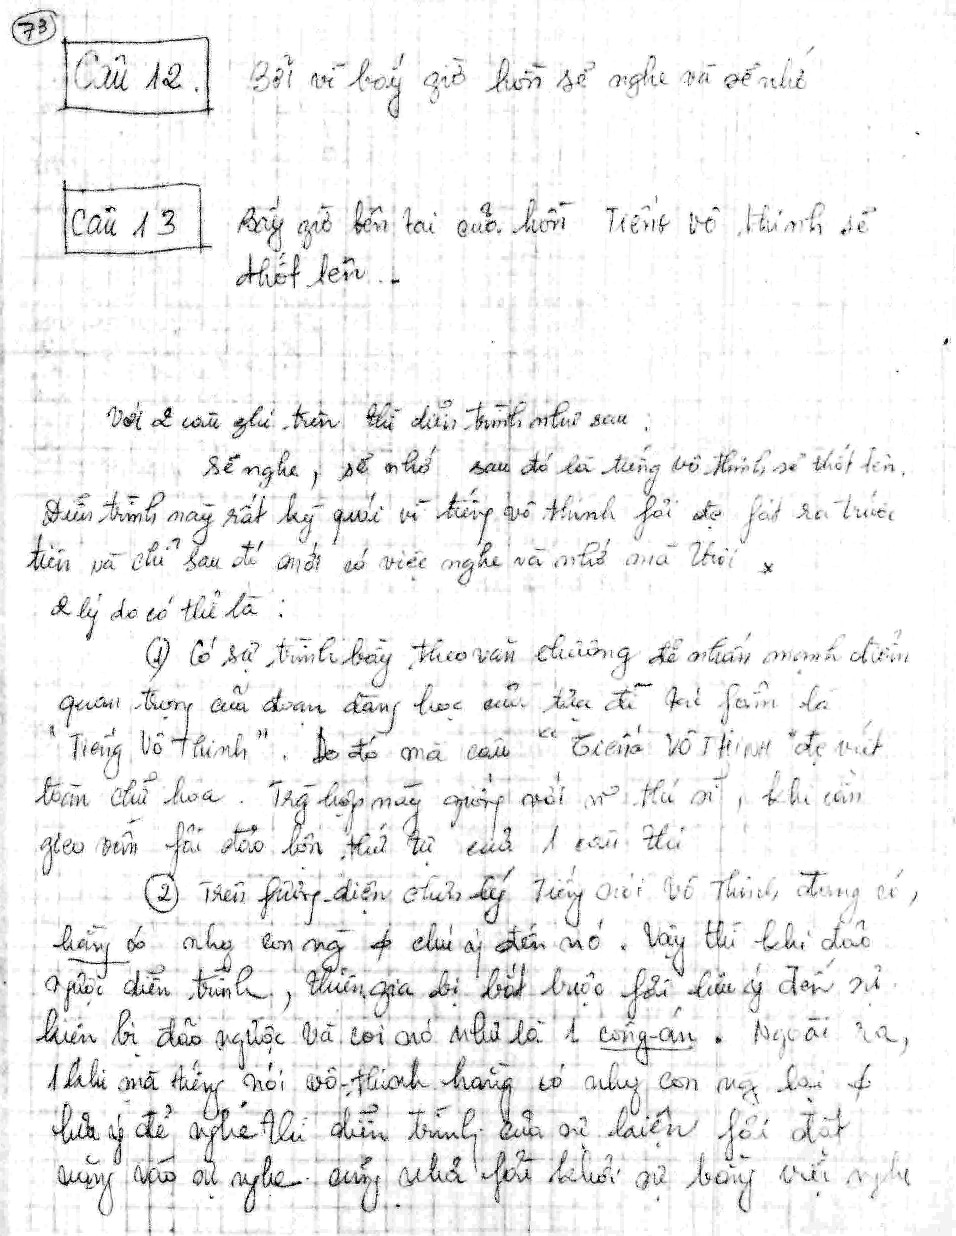 73
Câu 12. Bởi vì bấy giờ hồn sẽ nghe và sẽ nhớ
Câu 13 Bấy giờ bên tai của hồn Tiếng vô thinh sẽ
thốt lên...
Với 2 câu ghi trên thì diễn trình như sau :
Sẽ nghe, sẽ nhớ sau đó là tiếng vô thinh sẽ thốt lên.
Diễn trình này rất kỳ quái vì tiếng vô thinh fải đc fát ra trước
tiên và chỉ sau đó mới có việc nghe và nhớ mà thôi
2 lý do có thể là :
① Có sự trình bày theo văn chương để nhấn mạnh điểm
quan trọng của đoạn đang học của tựa đề tác fẩm là
"Tiếng Vô Thinh". Do đó mà câu "TIẾNG VÔ THINH" đc viết
toàn chữ hoa. Trg hợp này giống với thi sĩ, khi cần
gieo vần fải đảo lộn thứ tự của 1 câu thơ
② Trên fương diện chân lý Tiếng nói Vô Thinh đang có,
hằng có nhg con ng ∉ chú ý đến nó. Vậy thì khi đảo
ngược diễn trình, thiền gia bị bắt buộc fải lưu ý đến sự
kiện bị đảo ngược và coi nó như là 1 công-án. Ngoài ra,
1 khi mà tiếng nói vô-thinh hằng có nhg con ng lại ∉
lưu ý để nghe thì diễn trình của sự kiện fải đặt
nặng vào sự nghe cũng như fải khởi sự bằng việc nghe